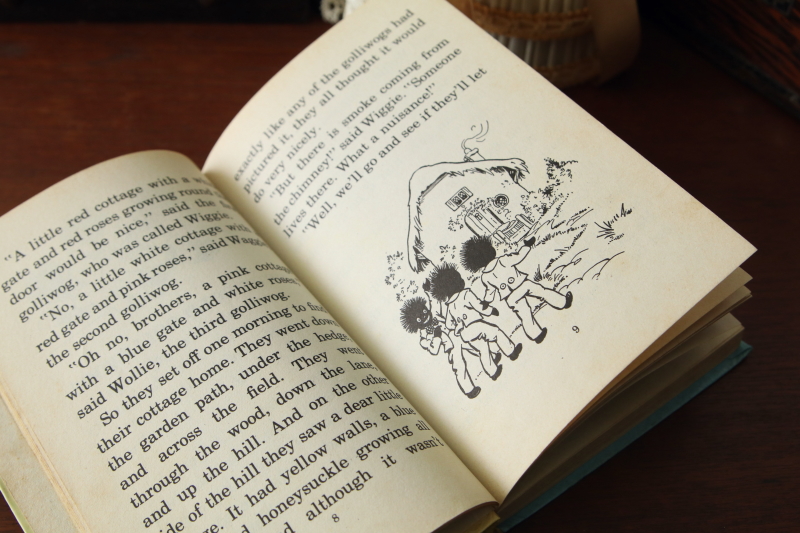 "A little red cottage with a
gate and red roses growing round
door would be nice," said the
golliwog, who was called Wiggie.
"No, a little white cottage with
red gate and pink roses," said Waggie
the second golliwog.
"Oh no, brothers, a pink cottage
with a blue gate and white roses,"
said Wollie, the third golliwog.
So they set off one morning to find
their cottage home. They went down
the garden path, under the hedge,
and across the field. They went
through the wood, down the lane,
and up the hill. And on the other
side of the hill they saw a dear little
It had yellow walls, a blue
honeysuckle growing all
although it wasn't
8
exactly like any of the golliwogs had
pictured it, they all thought it would
do very nicely.
"But there is smoke coming from
the chimney!" said Wiggie. "Someone
lives there. What a nuisance!"
"Well, we'll go and see if they'll let
9